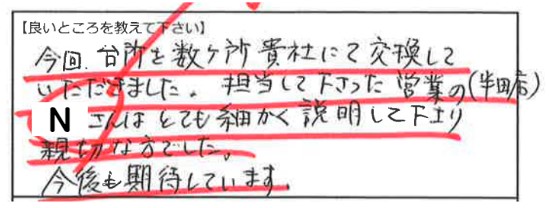 【良いところを教えて下さい】
今回、台所を数ヶ所貴社にて交換して
いただきました。担当して下さった営業の(半田店)
Nさんはとても細かく説明して下さり
親切な方でした。
今後も期待しています。